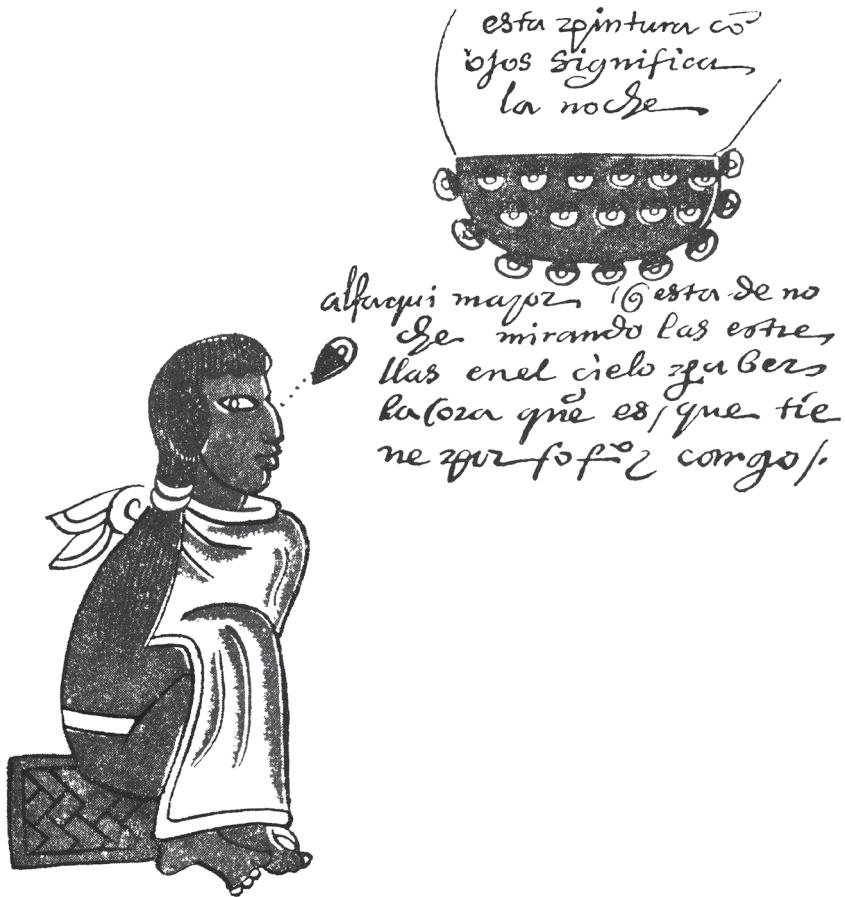 esta pintura cõ
ojos significa
la noche
alfaqui mayor q esta de no
che mirando las estre
llas enel cielo pa ber
la ora que es / que tie
ne por y cargo /.